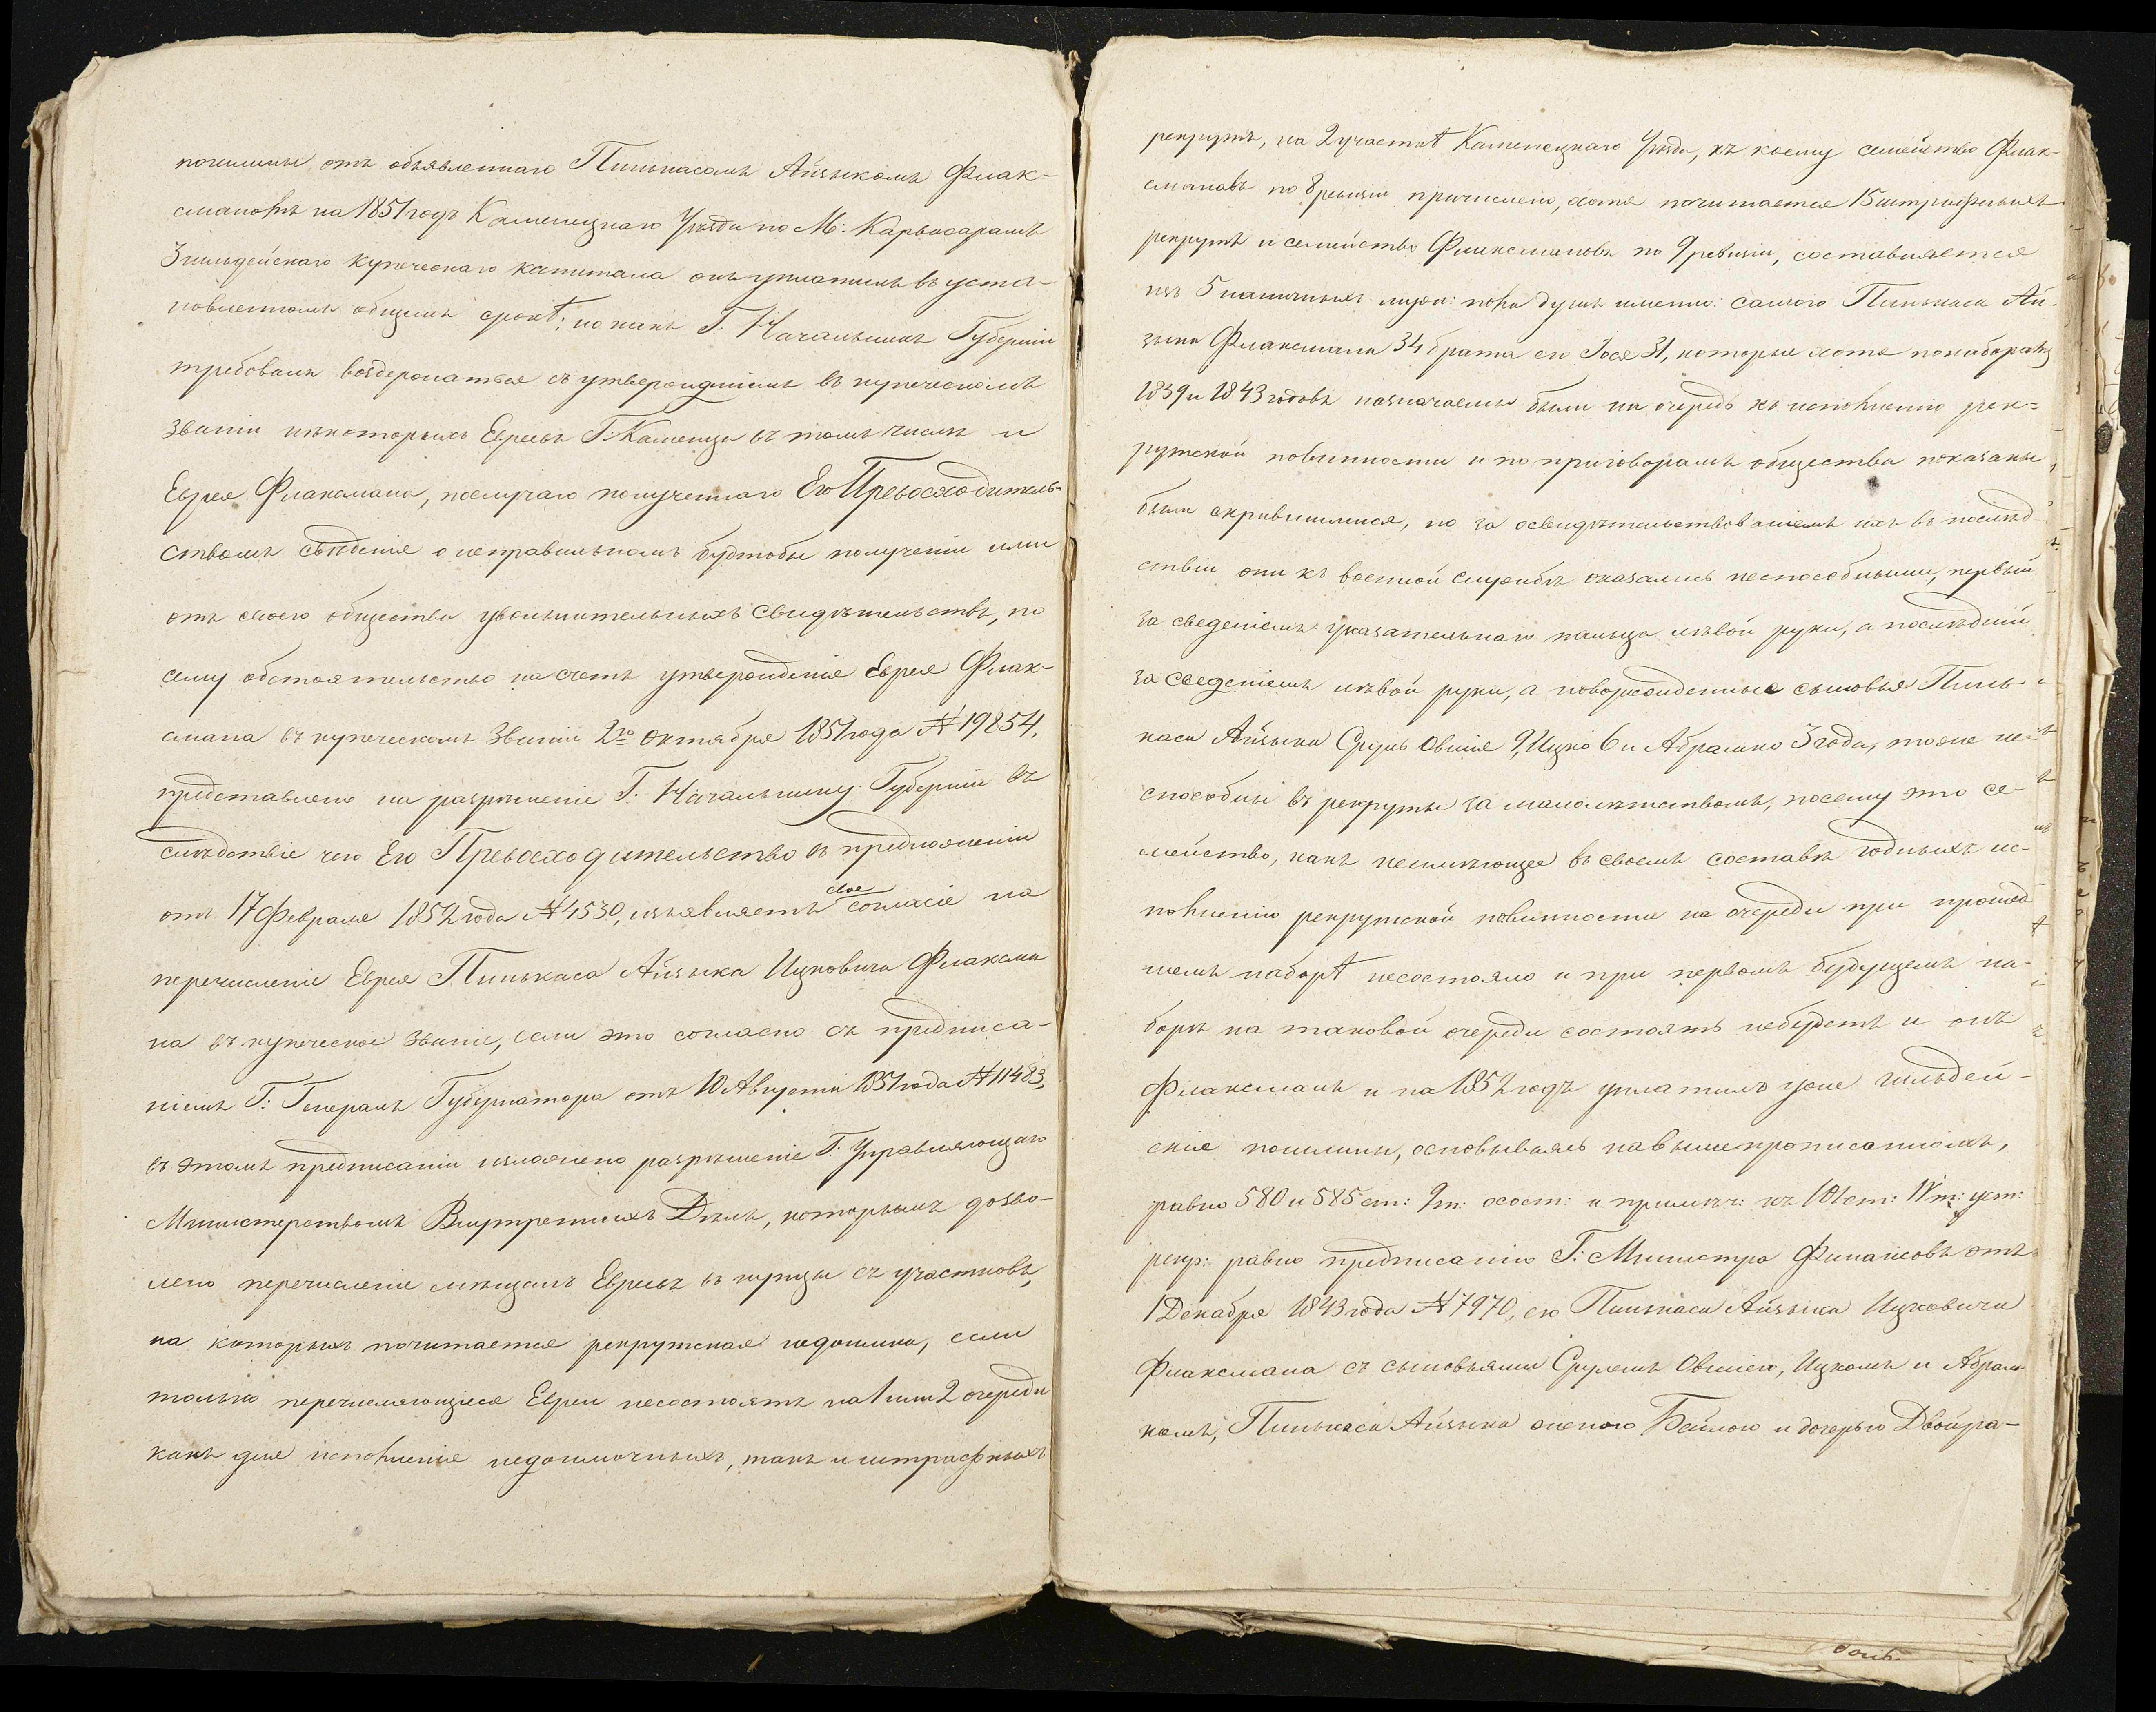 пошлины отъ объявленнаго Пинькасомъ Айзыкомъ Флак-
сманомъ на 1851 годъ Каменецкаго Уѣзда по М: Карвасарамъ
3 гильдейскаго купеческаго капитала онъ уплатилъ въ уста-
новленномъ общемъ срокѣ; но какъ Г. Начальникъ Губерніи
требовалъ воздержаться съ утвержденіемъ въ купеческомъ
званіи нѣкоторыхъ Евреевъ Г: Каменца въ томъ числѣ и
Еврея Флаксмана, послучаю полученнаго Его Превосходитель-
ствомъ свѣденія о неправильномъ будтобы полученіи ими
отъ своего общества увольнительныхъ свидѣтельствъ, по
сему обстоятельство на счетъ утвержденія Еврея Флак-
смана въ купеческомъ званіи 2го Октября 1851 года № 19854,
представлено на разрѣшеніе Г. Начальнику Губерніи въ
слѣдствіе чего Его Превосходительство въ предложеніи
отъ 17 Февраля 1852 года № 4530, изъявляетъ свое согласіе на
перечисленіе Еврея Пинькаса Айзыка Ицковича Флаксма
на въ купеческое званіе, если это согласно съ предписа-
ніемъ Г: Генералъ Губернатора отъ 10 Августа 1851 года № 11483,
въ этомъ предписаніи изложено разрѣшеніе Г. Управляющаго
Министерствомъ Внутреннихъ Дѣлъ, которымъ дозво-
лено перечисленіе мѣщанъ Евреевъ въ купцы съ участковъ,
на которыхъ почитается рекрутская недоимка, если
только перечисляющіеся Евреи несостоятъ на 1 или 2 очереди
какъ для исполненія недоимочныхъ, такъ и штрафныхъ
рекрутъ, на 2 участкѣ Каменецкаго Уѣзда, къ коему семейство Флак-
смановъ по 8 ревизіи причислено, хотя почитается 15 штрафныхъ
рекрутъ и семейство Флаксмановъ по 9 ревизіи, составляется
изъ 5 наличныхъ муж: пола душъ именно: самого Пинькаса Ай-
зыка Флаксмана 34 брата его Іося 31, которые хотя понаборамъ
1839 и 1843 годовъ назначаемы были на очередь къ исполненію рек-
рутской повинности и по приговорамъ общества показаны
были скрившимися, но за освидѣтельствованіемъ ихъ въ послѣд-
ствіи они къ военной службѣ оказались неспособными, первый
за сведеніемъ указательнаго пальца лѣвой руки, а послѣдній
за сведеніемъ лѣвой руки, а новорожденные сыновья Пинь-
каса Айзыка Сруль Овшія 9, Ицко 6 и Абрамко 3 года, тоже не-
способны въ рекруты за малолѣтствомъ, посему это се-
мейство, какъ неимѣющее въ своемъ составѣ годныхъ ис-
полненію рекрутской повинности на очереди при прошед
шемъ наборѣ несостояло и при первомъ будущемъ на-
борѣ на таковой очереди состоять небудетъ и онъ
Флаксманъ и на 1852 годъ уплатилъ уже гильдей-
скія пошлины, основываясь навышепрописанномъ,
равно 580 и 585 ст: 9 т: осост: и примѣч: къ 101 ст: IV т: уст:
рекр: равно предписанію Г: Министра Финансовъ отъ
1 Декабря 1843 года № 7970, его Пинькаса Айзыка Ицковича
Флаксмана съ сыновьями Срулемъ Овшіею, Ицкомъ и Абрам-
комъ, Пинькаса Айзыка женою Бейлою и дочерью Двойра-